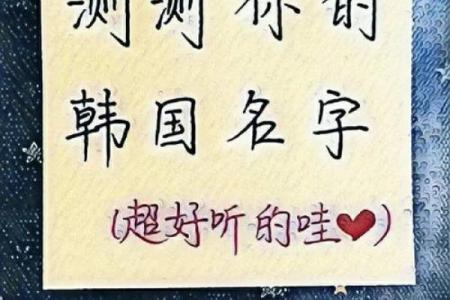 测测你的
韩国名字
(超好听的哇❤)